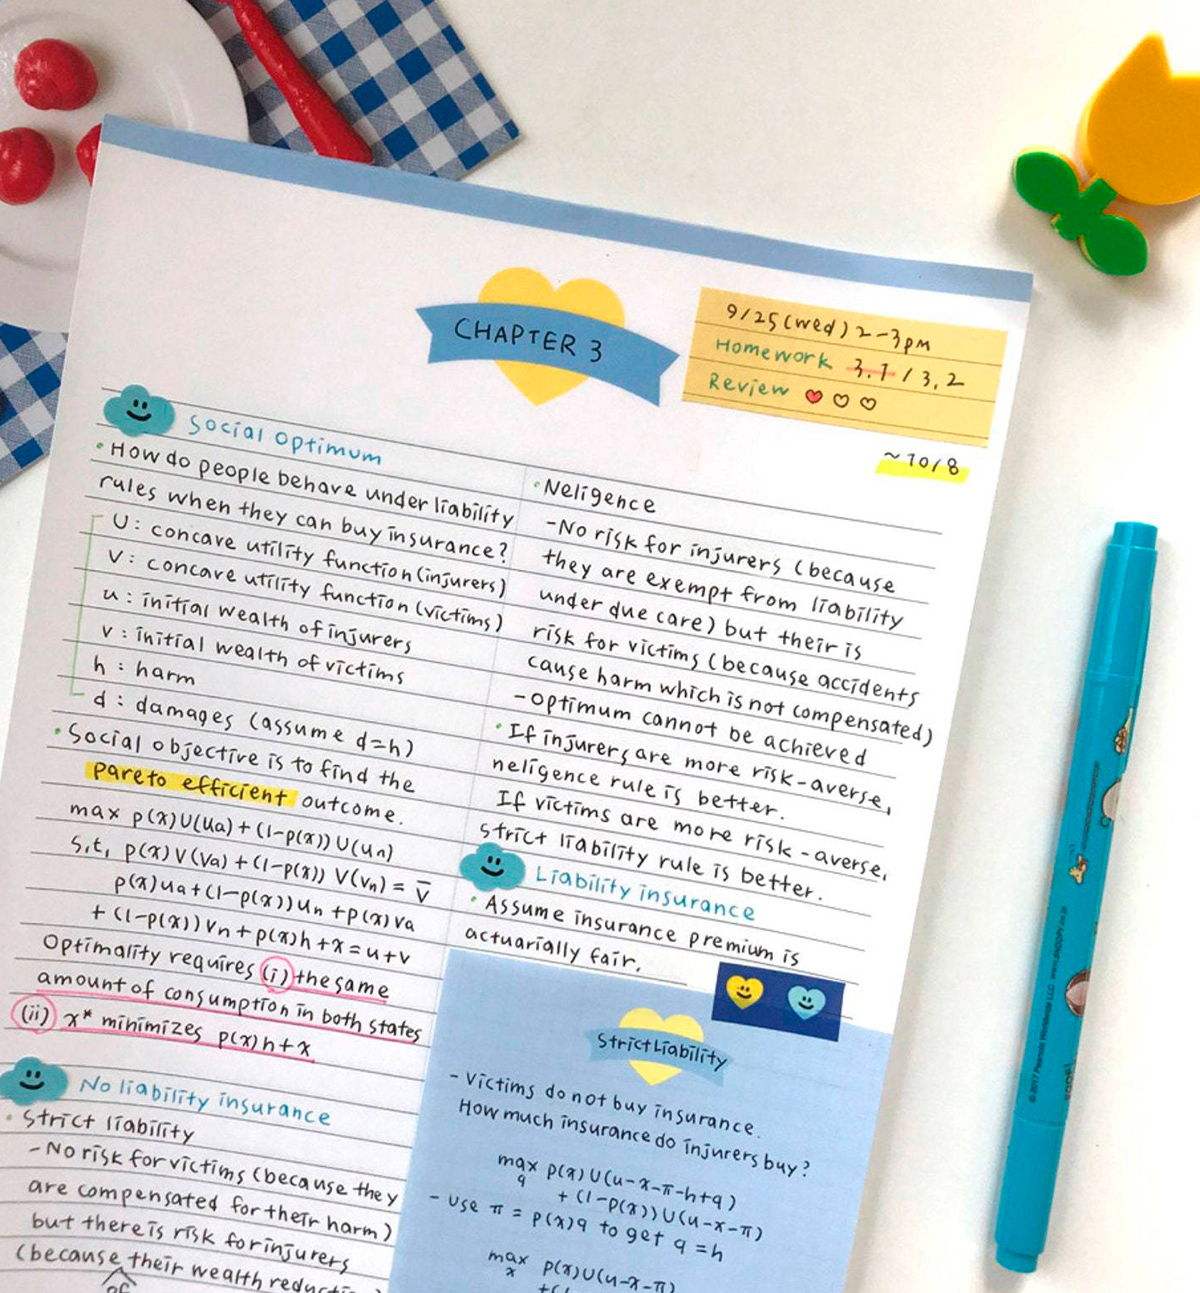 CHAPTER 3
9/25 (wed) 2-3pm
Homework 3.1 / 3.2
Review
~10/8
Social Optimum
• How do people behave under liability
rules when they can buy insurance?
U: concave utility function (injurers)
V: concave utility function (victims)
u: initial wealth of injurers
v: initial wealth of victims
h: harm
d: damages (assume d=h)
• Social objective is to find the
pareto efficient outcome.
max p(x)U(ua) + (1-p(x)) U(un)
s.t. p(x)V(va) + (1-p(x)) V(vn) = V̄
p(x)ua + (1-p(x))un + p(x)va
+ (1-p(x))vn + p(x)h + x = u+v
Optimality requires (i) the same
amount of consumption in both states
(ii) x* minimizes p(x)h+x
No liability insurance
• Strict liability
- No risk for victims (because they
are compensated for their harm)
but there is risk for injurers
(because their wealth
of
• Neligence
- No risk for injurers (because
they are exempt from liability
under due care) but their is
risk for victims (because accidents
cause harm which is not compensated)
- Optimum cannot be achieved
• If injurers are more risk-averse,
neligence rule is better.
If victims are more risk-averse,
strict liability rule is better.
Liability insurance
• Assume insurance premium is
actuarially fair.
Strict Liability
- Victims do not buy insurance.
How much insurance do injurers buy?
max p(x)U(u-x-π-h+q)
q
+ (1-p(x))U(u-x-π)
- Use π = p(x)q to get q=h
max p(x)U(u-x-π)
x
© 2017 Peanuts Worldwide LLC www.SNOOPY.co.jp